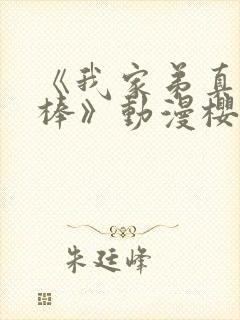 《我家弟真
棒》動漫櫻
朱廷峰